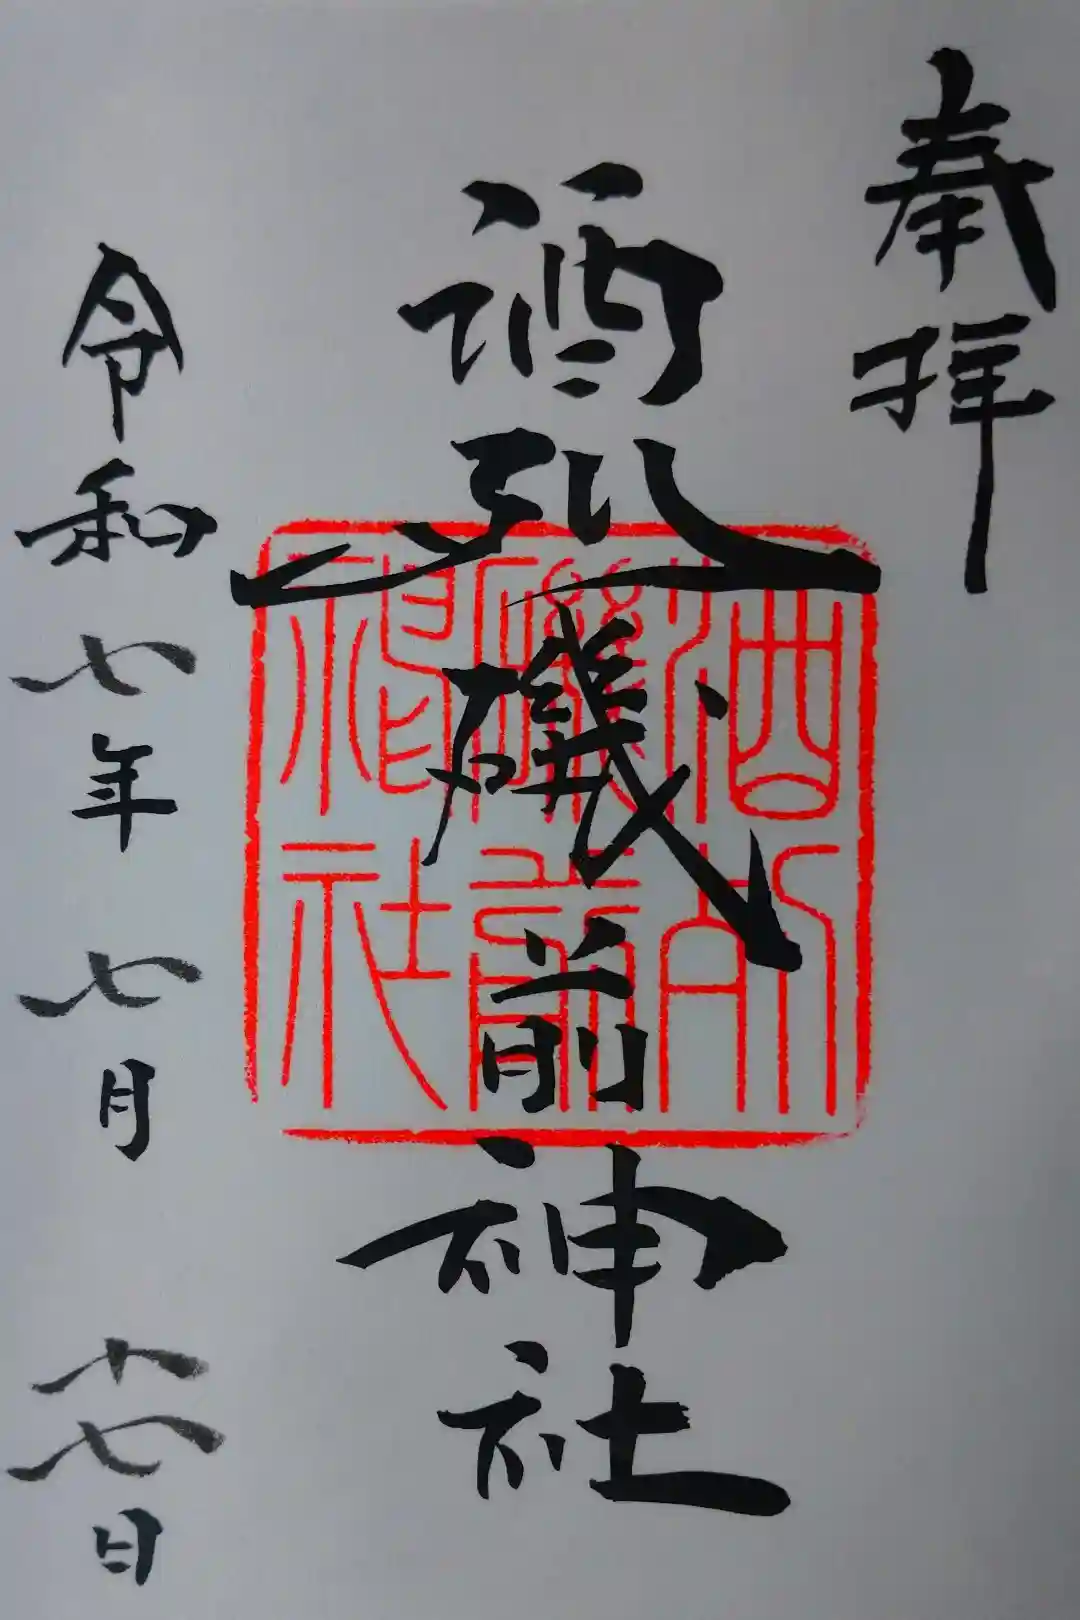 奉拝
酒列磯前神社
令和七年七月十七日
酒列
磯前
神社